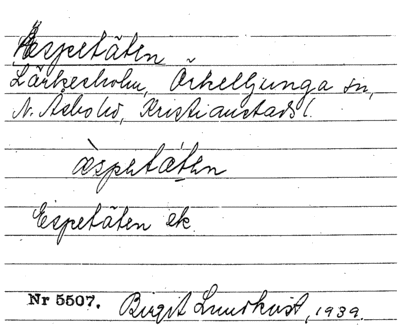 Äspetäten
Lärkesholm, Örkelljunga sn,
N. Åsbo hd, Kristianstads l.
äspetä́ten
Espetäten ek.
Nr 5507. Birgit Lundkvist, 1939.